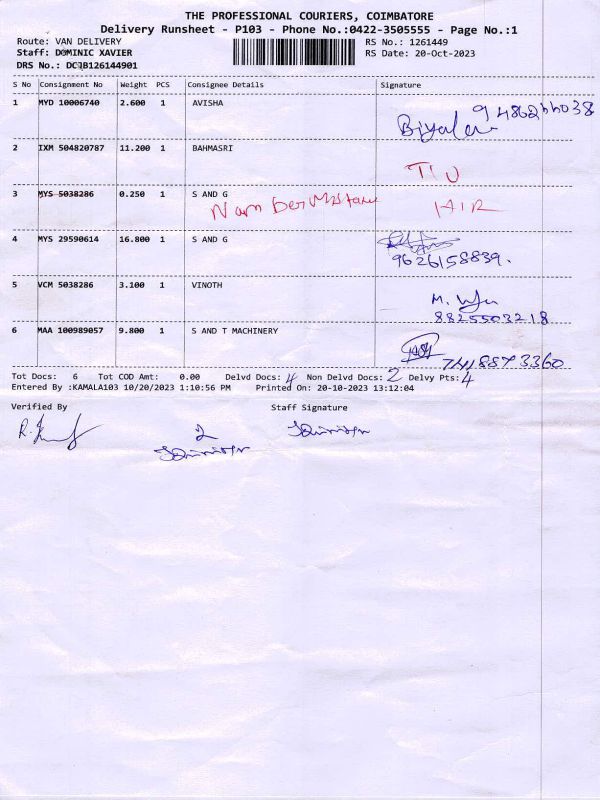 THE PROFESSIONAL COURIERS, COIMBATORE
Delivery Runsheet - P103 - Phone No.:0422-3505555 - Page No.:1
Route: VAN DELIVERY RS No.: 1261449
Staff: DOMINIC XAVIER RS Date: 20-Oct-2023
DRS No.: DC1B126144901
S No Consignment No Weight PCS Consignee Details Signature
1 MYD 10006740 2.600 1 AVISHA
2 IXM 504820787 11.200 1 BAHMASRI
3 MYS 5038286 0.250 1 S AND G
HIR
4 MYS 29590614 16.800 1 S AND G
9626158839.
5 VCM 5038286 3.100 1 VINOTH
8825503218
6 MAA 100989057 9.800 1 S AND T MACHINERY
7418873360
Tot Docs: 6 Tot COD Amt: 0.00 Delvd Docs: 4 Non Delvd Docs: 2 Delvy Pts: 4
Entered By :KAMALA103 10/20/2023 1:10:56 PM Printed On: 20-10-2023 13:12:04
Verified By Staff Signature
2